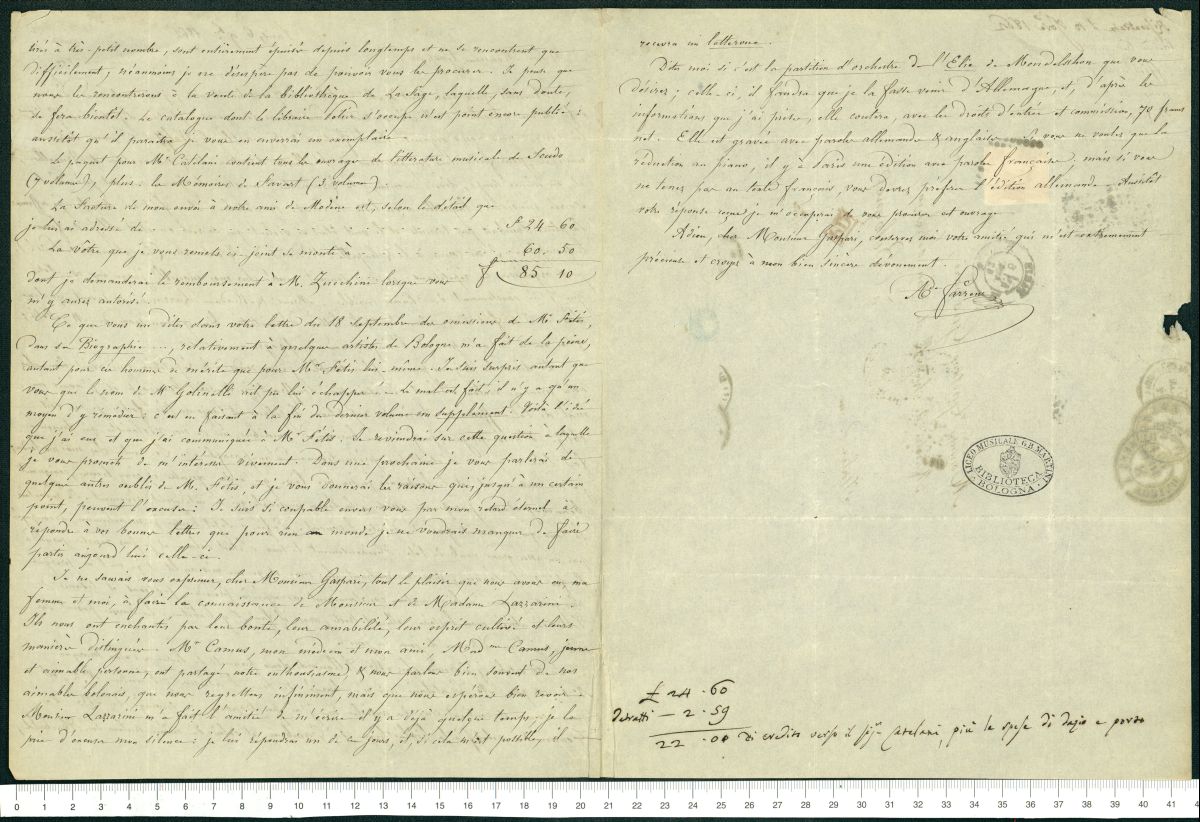 tirés à très-petit nombre, sont entièrement épuisés depuis longtemps et ne se rencontrent que
difficilement; néanmoins je ne désespère pas de pouvoir vous les procurer. Je pense que
nous les rencontrerons à la vente de la bibliothèque de La Fage, laquelle, sans doute,
se fera bientôt. Le catalogue dont le libraire s'occupe n'est point encore publié:
aussitôt qu'il paraîtra je vous en enverrai un exemplaire.
Le paquet pour Mr Catelani contient tous les ouvrages de littérature musicale de Scudo
(7 volumes), plus: les Mémoires de Favart (3 volumes).
La facture de mon envoi à notre ami de Modène est, selon le détail que
je lui ai adressé de . . . . F 24-60
La vôtre que je vous remets ci-joint se monte à . . 60. 50
85 10
dont je demanderai le remboursement à M. Zucchini lorsque vous
m'y aurez autorisé.
Ce que vous me dites dans votre lettre du 18 Septembre des omissions de Mr Fétis,
dans sa Biographie . . , relativement à quelques artistes de Bologne m'a fait de la peine,
autant pour ces hommes de mérite que pour Mr Fétis lui-même. Je suis surpris autant que
vous que le nom de Mr Golinelli ait pu lui échapper. - Le mal est fait, il n'y a qu'un
moyen d'y remédier: c'est en faisant à la fin du dernier volume un supplément. Voilà l'idée
que j'ai eue et que j'ai communiquée à Mr Fétis. Je reviendrai sur cette question à laquelle
je vous promets de m'intéresser vivement. Dans une prochaine je vous parlerai de
quelques autres oublis de M. Fétis, et je vous donnerai les raisons qui, jusqu'à un certain
point, peuvent l'excuser: Je suis si coupable envers vous par mon retard éternel à
répondre à vos bonnes lettres que pour rien au monde je ne voudrais manquer de faire
partir aujourd'hui celle-ci.
Je ne saurais vous exprimer, cher Monsieur Gaspari, tout le plaisir que nous avons eu, ma
femme et moi, à faire la connaissance de Monsieur et de Madame Lazzarini.
Ils nous ont enchantés par leur bonté, leur amabilité, leur esprit cultivé et leurs
manières distinguées. Mr Camus, mon médecin et mon ami, Mad me Camus, jeune
et aimable personne, ont partagé notre enthousiasme, & nous parlons bien souvent de nos
aimables bolonais, que nous regrettons infiniment, mais que nous espérons bien revoir.
Monsieur Lazzarini m'a fait l'amitié de m'écrire il y a déjà quelque temps; je le
prie d'excuser mon silence: je lui répondrai un de ces jours, et, si cela m'est possible, il
recevra un letterone.
Dites moi si c'est la partition d'orchestre de l'Elie de Mendelshon que vous
désirez; celle-ci, il faudra que je la fasse venir d'Allemagne, et, d'après les
informations que j'ai prises, elle coutera, avec les droits d'entrée et commission, 70 francs
net. Elle est gravée avec paroles allemandes & anglaises. vous ne voulez que la
réduction au piano, il y a à Paris une édition avec paroles françaises, mais si vous
ne tenez pas au texte français, vous devez préférer l'édition allemande. Aussitôt
votre réponse reçue je m'occuperai de vous procurer cet ouvrage.
Adieu, cher Monsieur Gaspari, conservez moi votre amitié qui m'est extrêmement
précieuse et croyez à mon bien sincère dévouement.
Ad. Farrenc
LICEO MUSICALE G.B. MARTINI
BIBLIOTECA
BOLOGNA
£ 24 . 60
detratti - 2 . 59
22 . 01 di credito verso il sigr Catelani, più le spese di dazio e porto